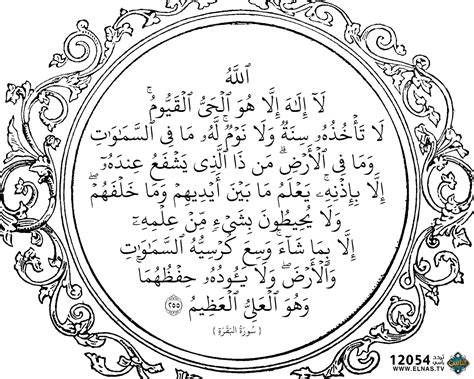 ٱللَّهُ
لَآ إِلَـٰهَ إِلَّا هُوَ ٱلْحَىُّ ٱلْقَيُّومُ ۚ
لَا تَأْخُذُهُۥ سِنَةٌ وَلَا نَوْمٌ ۚ لَّهُۥ مَا فِى ٱلسَّمَـٰوَٰتِ
وَمَا فِى ٱلْأَرْضِ ۗ مَن ذَا ٱلَّذِى يَشْفَعُ عِندَهُۥٓ
إِلَّا بِإِذْنِهِۦ ۚ يَعْلَمُ مَا بَيْنَ أَيْدِيهِمْ وَمَا خَلْفَهُمْ ۖ
وَلَا يُحِيطُونَ بِشَىْءٍ مِّنْ عِلْمِهِۦٓ
إِلَّا بِمَا شَآءَ ۚ وَسِعَ كُرْسِيُّهُ ٱلسَّمَـٰوَٰتِ
وَٱلْأَرْضَ ۖ وَلَا يَـُٔودُهُۥ حِفْظُهُمَا ۚ
وَهُوَ ٱلْعَلِىُّ ٱلْعَظِيمُ ٢٥٥
{ سُورَةُ البَقَرَةِ }
12054 تردد
WWW.ELNAS.TV